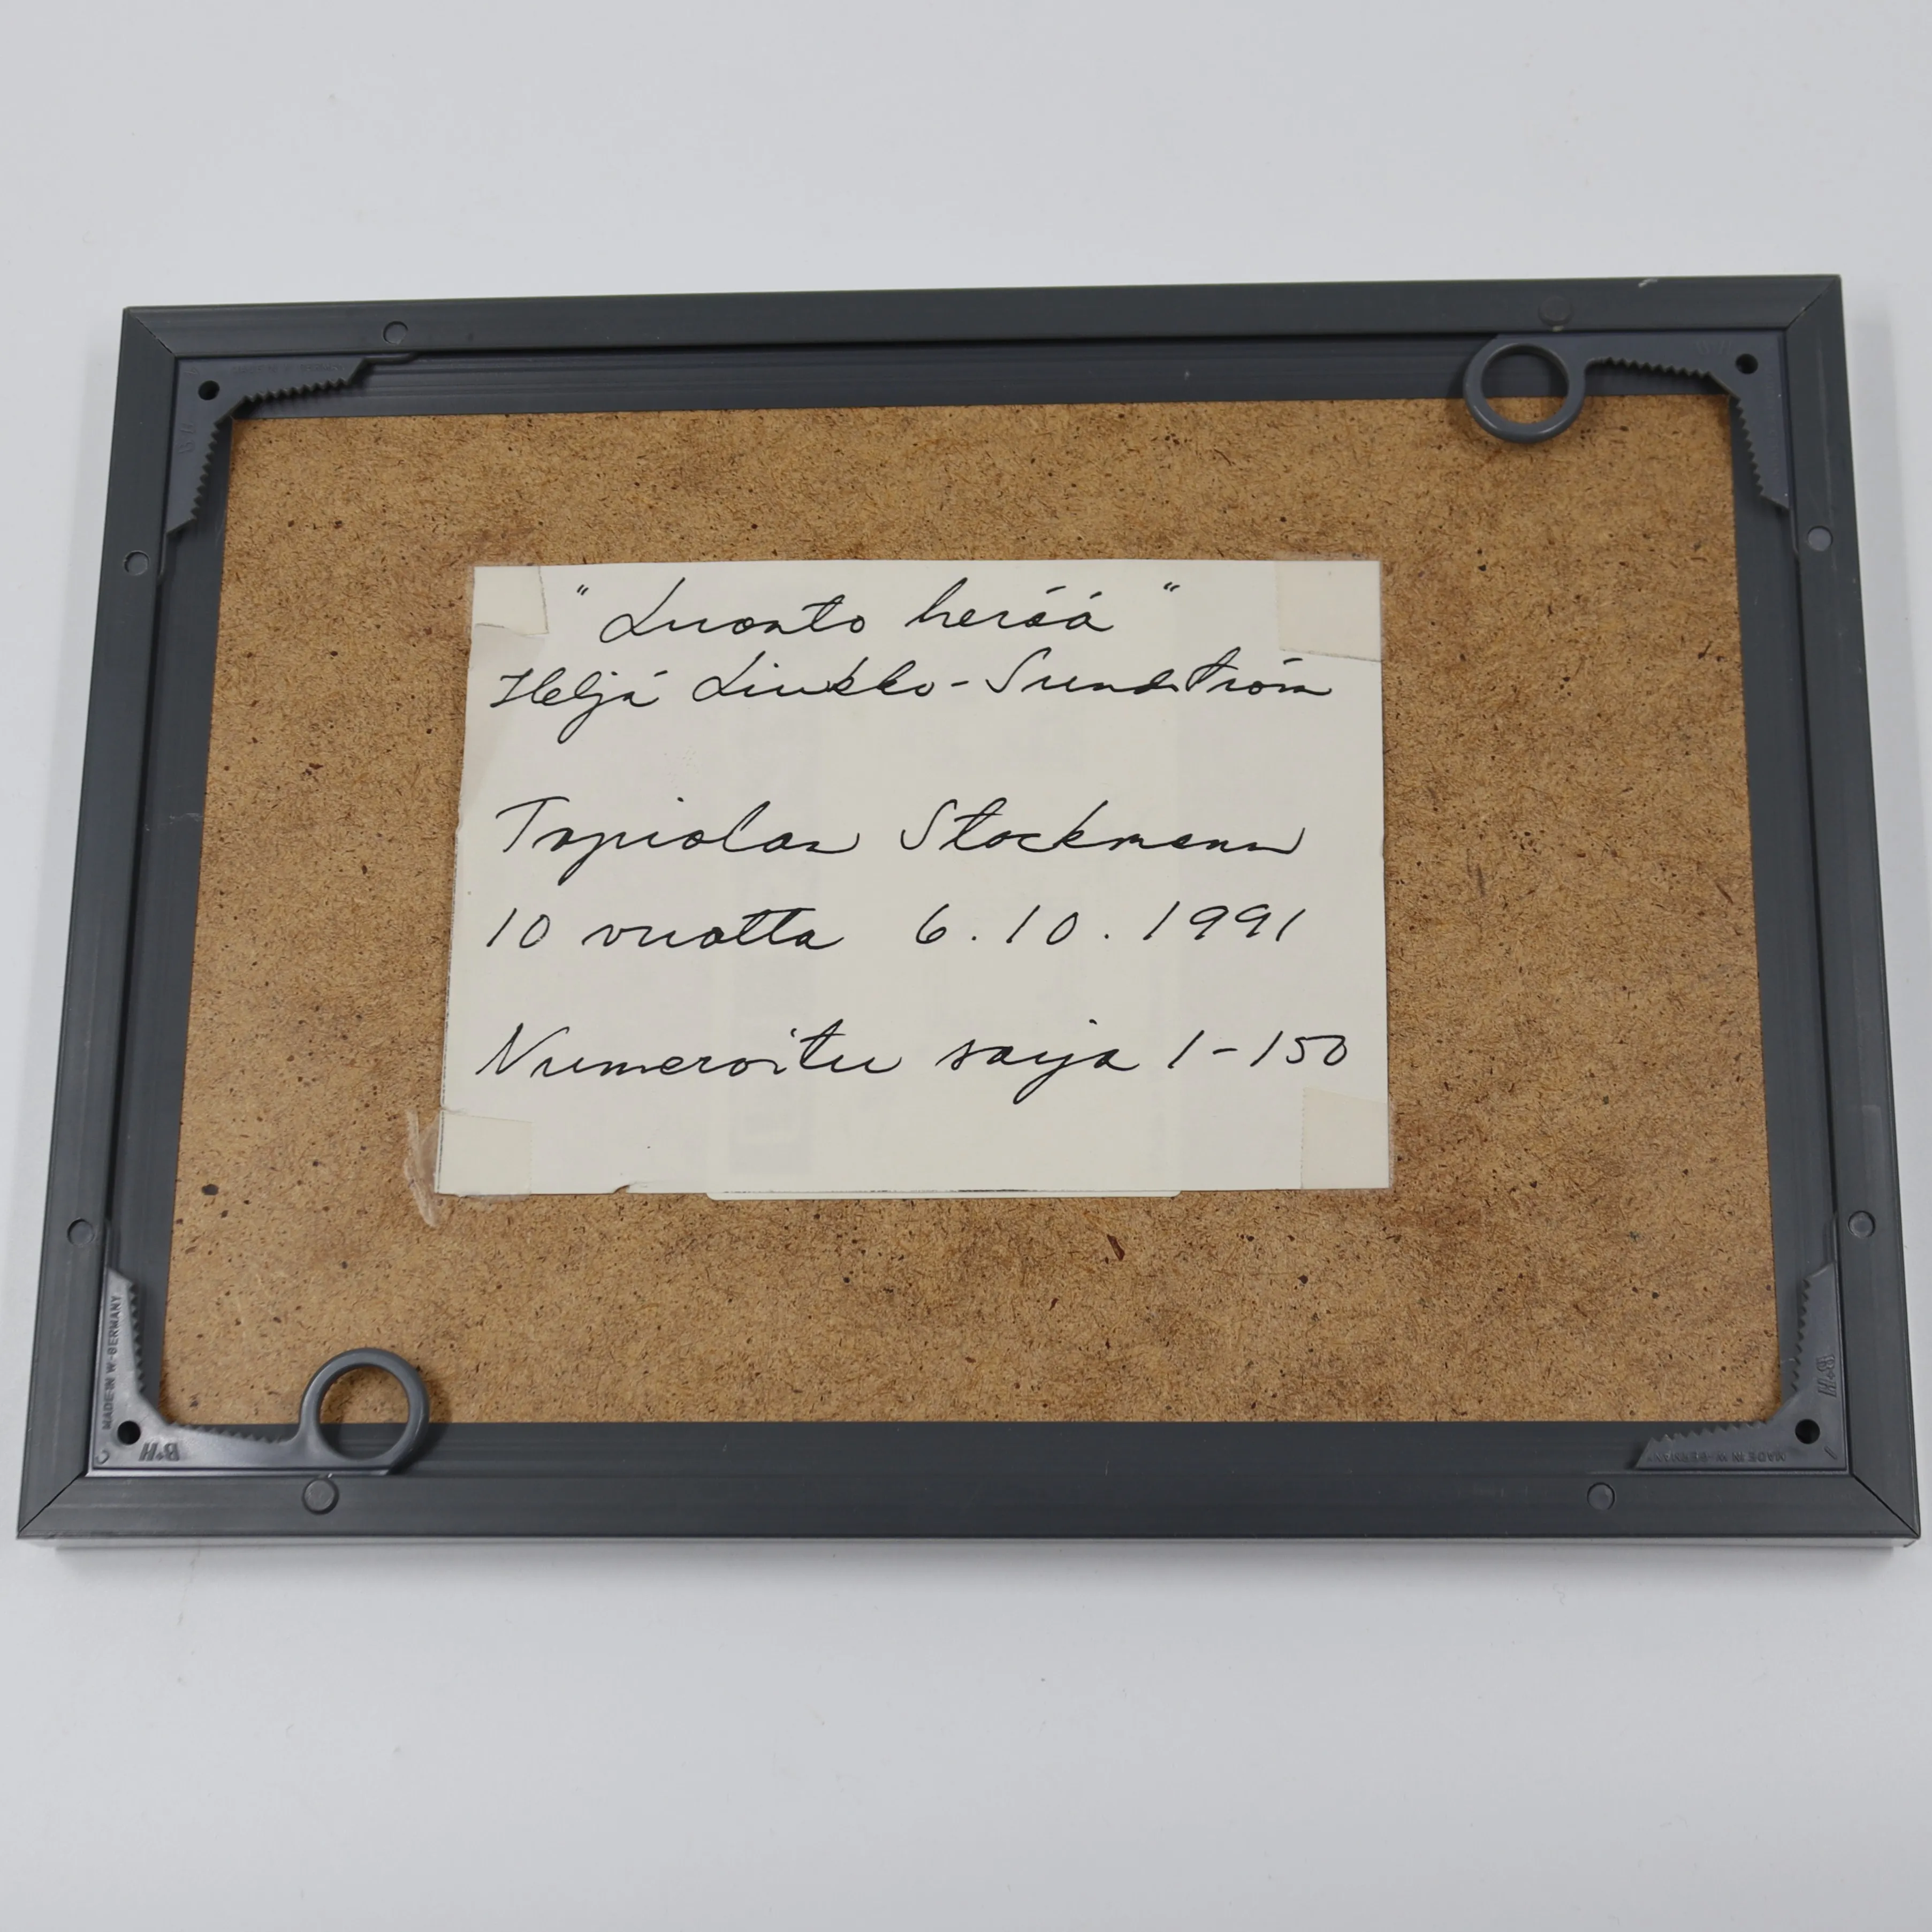 "Luonto herää"
Heljä Liukko-Sundström
Tapiolan Stockmann
10 vuotta 6.10.1991
Numeroitu sarja 1-150
MADE IN W-GERMANY
B+H
B+H
MADE IN W-GERMANY